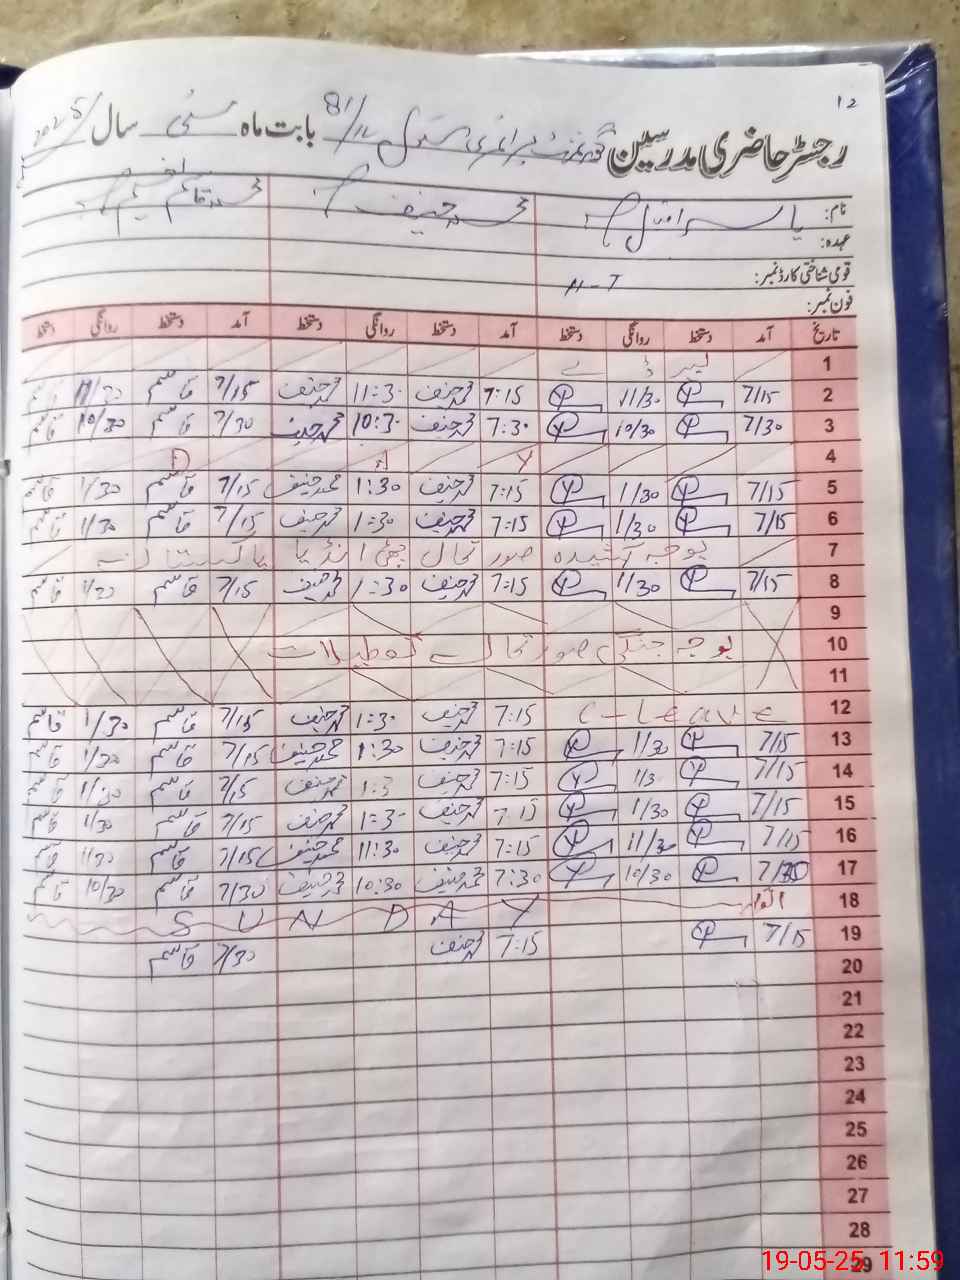 12
رجسٹر حاضری مدرسین گورنمنٹ پرائمری سکول 81/ بابت ماہ مئی سال 2025
نام: یاسر اقبال محمد حنیف محمد قاسم
عہدہ:
قومی شناختی کارڈ نمبر: H-T
فون نمبر:
تاریخ آمد دستخط روانگی دستخط آمد دستخط روانگی دستخط آمد دستخط روانگی دستخط
1 لیبر ڈے
2 7/15 11/30 7:15 محمد حنیف 11:30 محمد حنیف 7/15 قاسم 11/30 قاسم
3 7/30 10/30 7:30 محمد حنیف 10:30 محمد حنیف 7/30 قاسم 10/30 قاسم
4 Y A D
5 7/15 1/30 7:15 محمد حنیف 1:30 محمد حنیف 7/15 قاسم 1/30 قاسم
6 7/15 1/30 7:15 محمد حنیف 1:30 محمد حنیف 7/15 قاسم 1/30 قاسم
7 بوجہ کشیدہ صورتحال چھٹی انڈیا پاکستان
8 7/15 1/30 7:15 محمد حنیف 1:30 محمد حنیف 7/15 قاسم 1/30 قاسم
9
10 بوجہ جنگی صورتحال تعطیلات
11
12 C-Leave 7:15 محمد حنیف 1:30 محمد حنیف 7/15 قاسم 1/30 قاسم
13 7/15 1/30 7:15 محمد حنیف 1:30 محمد حنیف 7/15 قاسم 1/30 قاسم
14 7/15 1/3 7:15 محمد حنیف 1:3 محمد حنیف 7/15 قاسم 1/30 قاسم
15 7/15 1/30 7:15 محمد حنیف 1:30 محمد حنیف 7/15 قاسم 1/30 قاسم
16 7/15 11/30 7:15 محمد حنیف 11:30 محمد حنیف 7/15 قاسم 11/30 قاسم
17 7/30 10/30 7:30 محمد حنیف 10:30 محمد حنیف 7/30 قاسم 10/30 قاسم
18 اتوار SUNDAY
19 7/15 7:15 محمد حنیف 7/30 قاسم
20
21
22
23
24
25
26
27
28
29
19-05-25 11:59